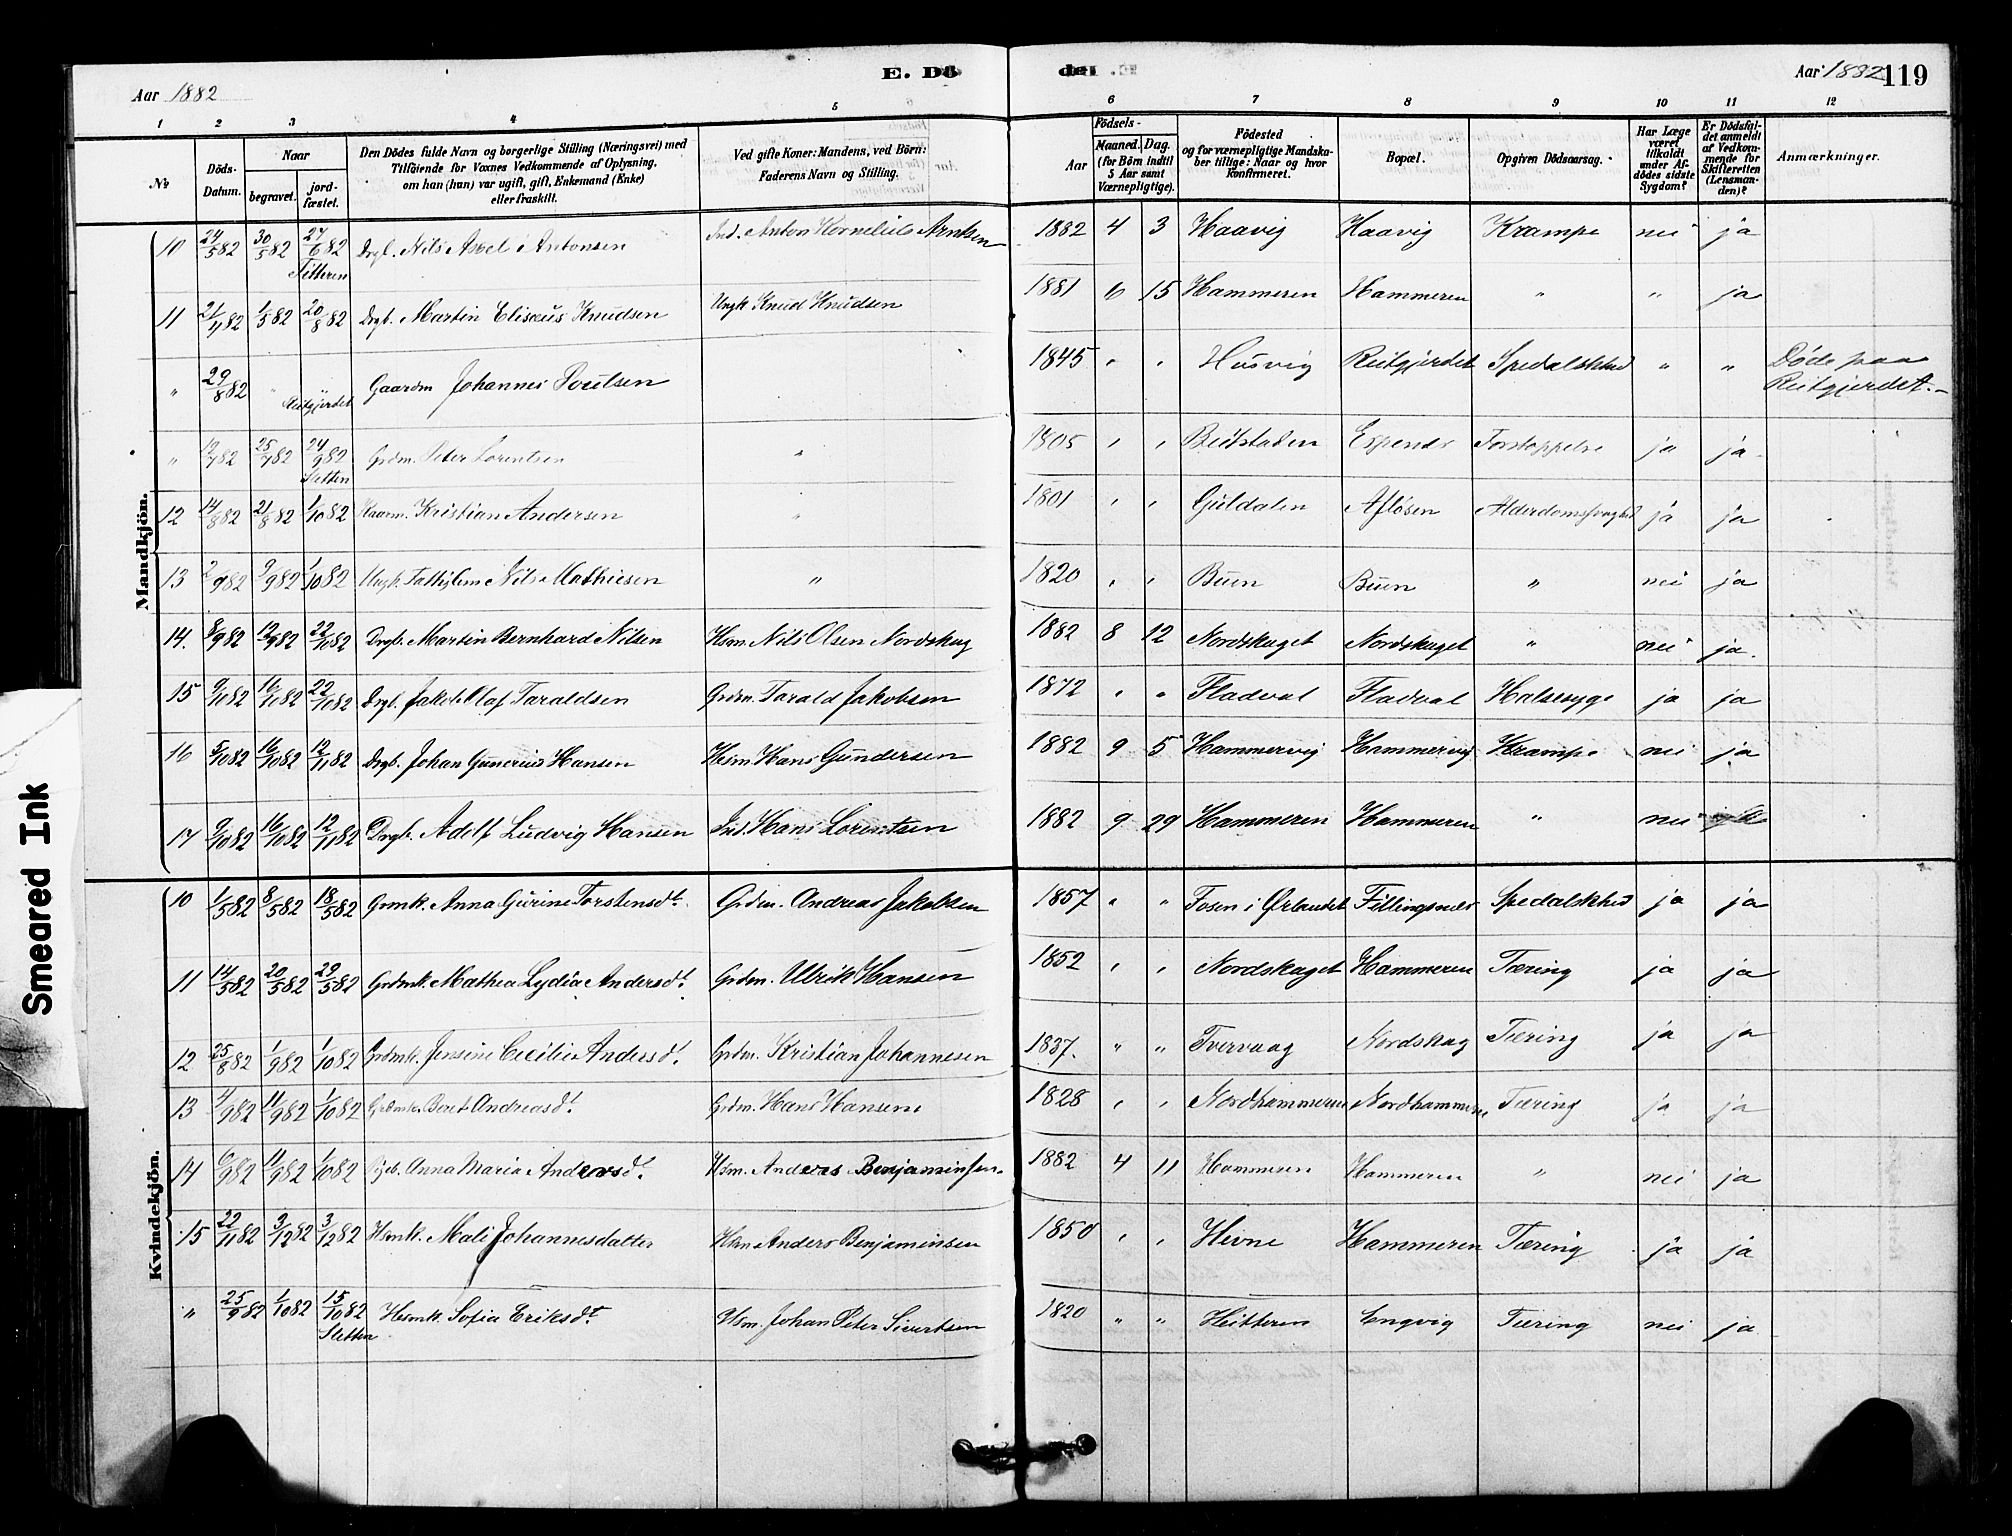 E. Dö
Aar 1882
1 2 3 4 5
№
Döds-Datum.
Naar
begravet.
jord-fæstet.
Den Dödes fulde Navn og borgerlige Stilling (Næringsvei) med
Tilföiende for Voxnes Vedkommende af Oplysning,
om han (hun) var ugift, gift, Enkemand (Enke)
eller fraskilt.
Ved gifte Koner: Mandens, ved Börn:
Faderens Navn og Stilling.
Mandkjön.
10 24/5 82 30/5 82 27/6 82 Titteren Drgb. Nils Axel Antonsen Ind. Anton Kornelius Arntsen
11 21/4 82 1/5 82 20/8 82 Drgb. Martin Elisæus Knudsen Ungk. Knud Knudsen
" 29/8 82 " " Reitgjerdet Gaardm Johannes Poulsen
" 19/7 82 25/7 82 24/9 82 Sletten Grdm. Peter Lorentsen "
12 14/8 82 21/8 82 1/10 82 Kaarm. Kristian Andersen "
13 2/9 82 9/9 82 1/10 82 Ungk. Fattiglem Nils Mathiesen "
14. 8/9 82 12/9 82 22/10 82 Drgb. Martin Bernhard Nilsen Hsm. Nils Olsen Nordskag
15 9/10 82 16/10 82 22/10 82 Drgb. Jakob Olaf Taraldsen Grdm. Tarald Jakobsen
16 5/10 82 16/10 82 12/11 82 Drgb. Johan Gunerius Hansen Hsm Hans Gundersen
17 9/10 82 16/10 82 12/11 82 Drgb. Adolf Ludvig Hansen Ind. Hans Lorentsen
Kvindekjön.
10 1/5 82 8/5 82 18/5 82 Grmk. Anna Gurine Torstensdt. Grdm. Andreas Jakobsen
11 14/5 82 20/5 82 29/5 82 Grdmk. Mathea Lydia Andersdt. Grdm. Ulrik Hansen
12 25/8 82 1/9 82 1/10 82 Grdmk. Jensine Cecilie Andersdt. Grdm. Kristian Johannesen
13 4/9 82 11/9 82 1/10 82 Grdmk. Beret Andreasdt. Grdm. Hans Hansen
14 6/9 82 11/9 82 1/10 82 Pgb. Anna Maria Andersdt. Hsm. Anders Benjaminsen.
15 22/11 82 3/12 82 3/12 82 Hsmk. Mali Johannesdatter Hsm Anders Benjaminsen
" 25/9 82 1/10 82 15/10 82 Sletten Hsmk. Sofia Eriksdt. Hsm. Johan Peter Sivertsen
de
Aar 1882
119
6 7 8 9 10 11 12
Aar
Födsels-
Maaned. Dag.
(for Börn indtil
5 Aar samt
Værnepligtige).
Födested
og for værnepligtige Mandska-
ber tillige: Naar og hvor
konfirmeret.
Bopæl.
Opgiven Dödsaarsag.
Har Læge
været
tilkaldt
under Af-
dödes sidste
Sygdom?
Er Dödsfal-
det anmeldt
af Vedkom-
mende for
Skifteretten
(Lensman-
den)?
Anmærkninger.
1882 4 3 Haavig Haavig Krampe nei ja
1881 6 15 Hammeren Hammeren " " ja
1845 " " Husvig Reitgjerdet Spedalskhed " " Døde paa Reitgjerdet.
1805 " " Beitstaden Espenes Forstoppelse ja ja.
1801 " " Guldalen Afløsen Alderdomssvaghed ja ja
1820 " " Buen Buen " nei ja
1882 8 12 Nordskaget Nordskaget " nei ja.
1872 " " Fladval Fladval Halssyge ja ja
1882 9 5 Hammervig Hammervig Krampe nei ja
1882 9 29 Hammeren Hammeren " nei
1857 " " Fosen i Ørlandet Fillingsnes Spedalskhed ja ja
1852 " " Nordskaget Hammeren Tæring ja ja
1837. " " Tvervaag Nordskag Tæring ja ja
1828 " " Nordhammeren Nordhammeren Tæring ja ja
1882 4 11 Hammeren Hammeren " nei ja
1850 " " Hevne Hammeren Tæring ja ja
1820 " " Hitteren Engvig Tæring nei ja
Smeared Ink